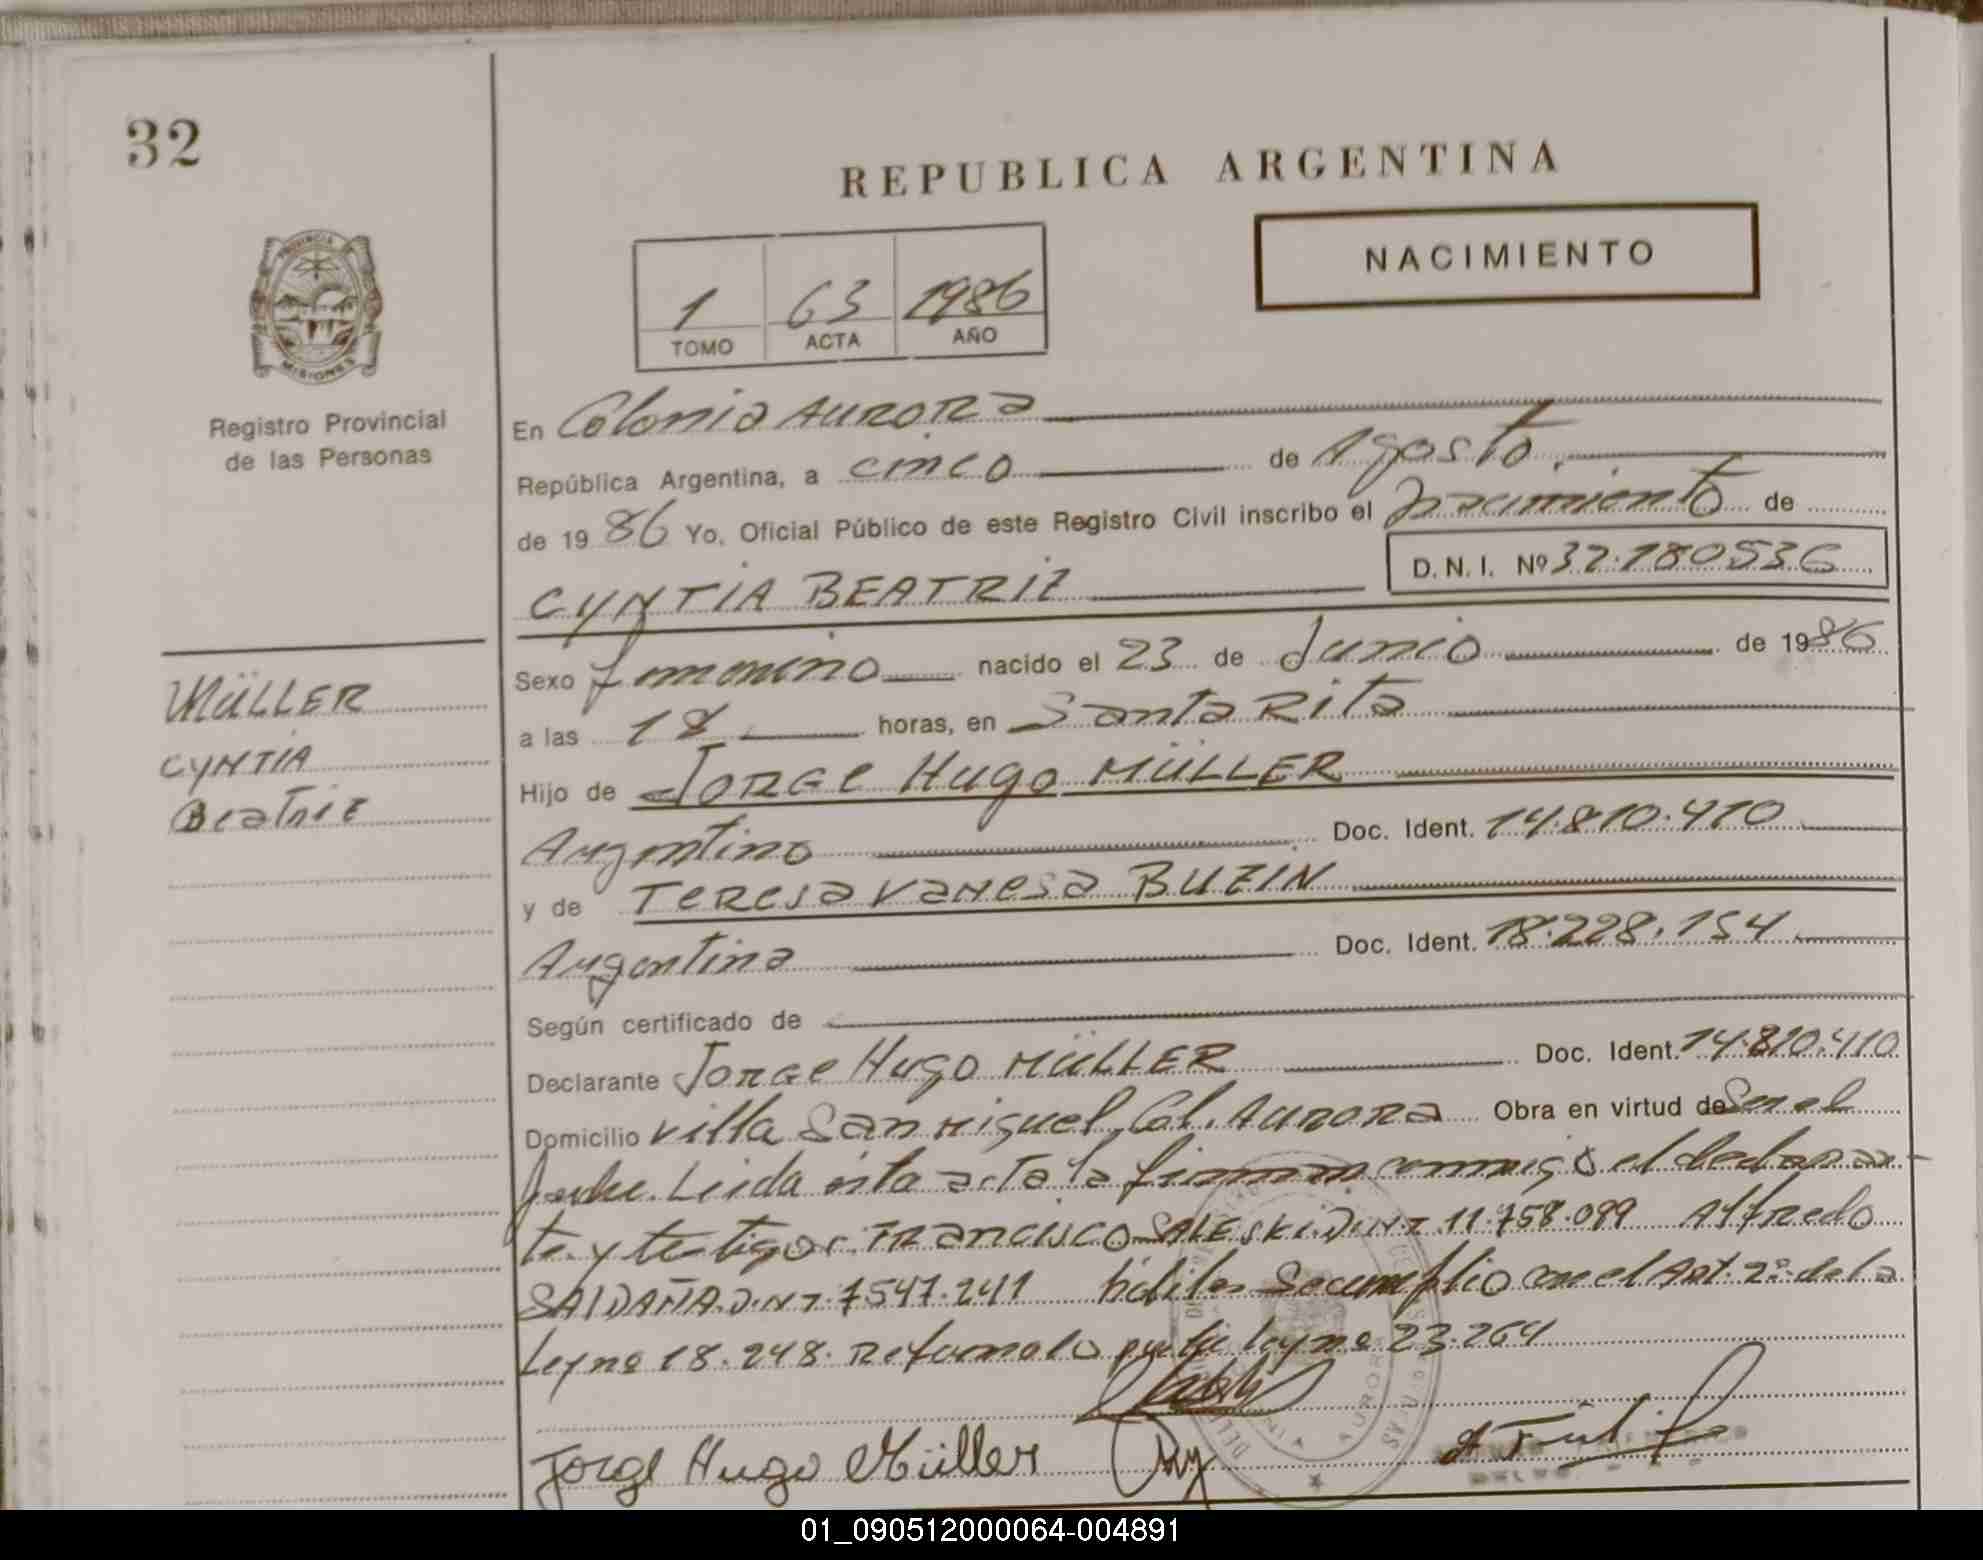 32
REPUBLICA ARGENTINA
NACIMIENTO
1 63 1986
TOMO ACTA AÑO
PROVINCIA
MISIONES
Registro Provincial
de las Personas
En Colonia AURORA
República Argentina, a cinco de Agosto.
de 1986 Yo, Oficial Público de este Registro Civil inscribo el nacimiento de
D.N.I. Nº 32.180536
CYNTIA BEATRIZ
Sexo femenino nacido el 23 de Junio de 1986
MÜLLER
CYNTIA
Beatriz
a las 18 horas, en Santa Rita
Hijo de JORGE Hugo MÜLLER
Argentino Doc. Ident. 14.810.410
y de Teresa Vanesa BUZIN
Argentina Doc. Ident. 18.228.154
Según certificado de
Declarante Jorge Hugo MÜLLER Doc. Ident. 14.810.410
Domicilio Villa San Miguel, Col. AURORA Obra en virtud de Ser el
Padre. Leida esta acta la firman conmigo el declaran
te y testigos FRANCISCO SALESKI D.N.I 11.758.099 Alfredo
SALDAÑA D.N.I 7547.241 hábiles Se cumplio con el Art. 2º de la
Ley nº 18.248. Reformado por la ley nº 23.264
Jorge Hugo Müller
01_090512000064-004891